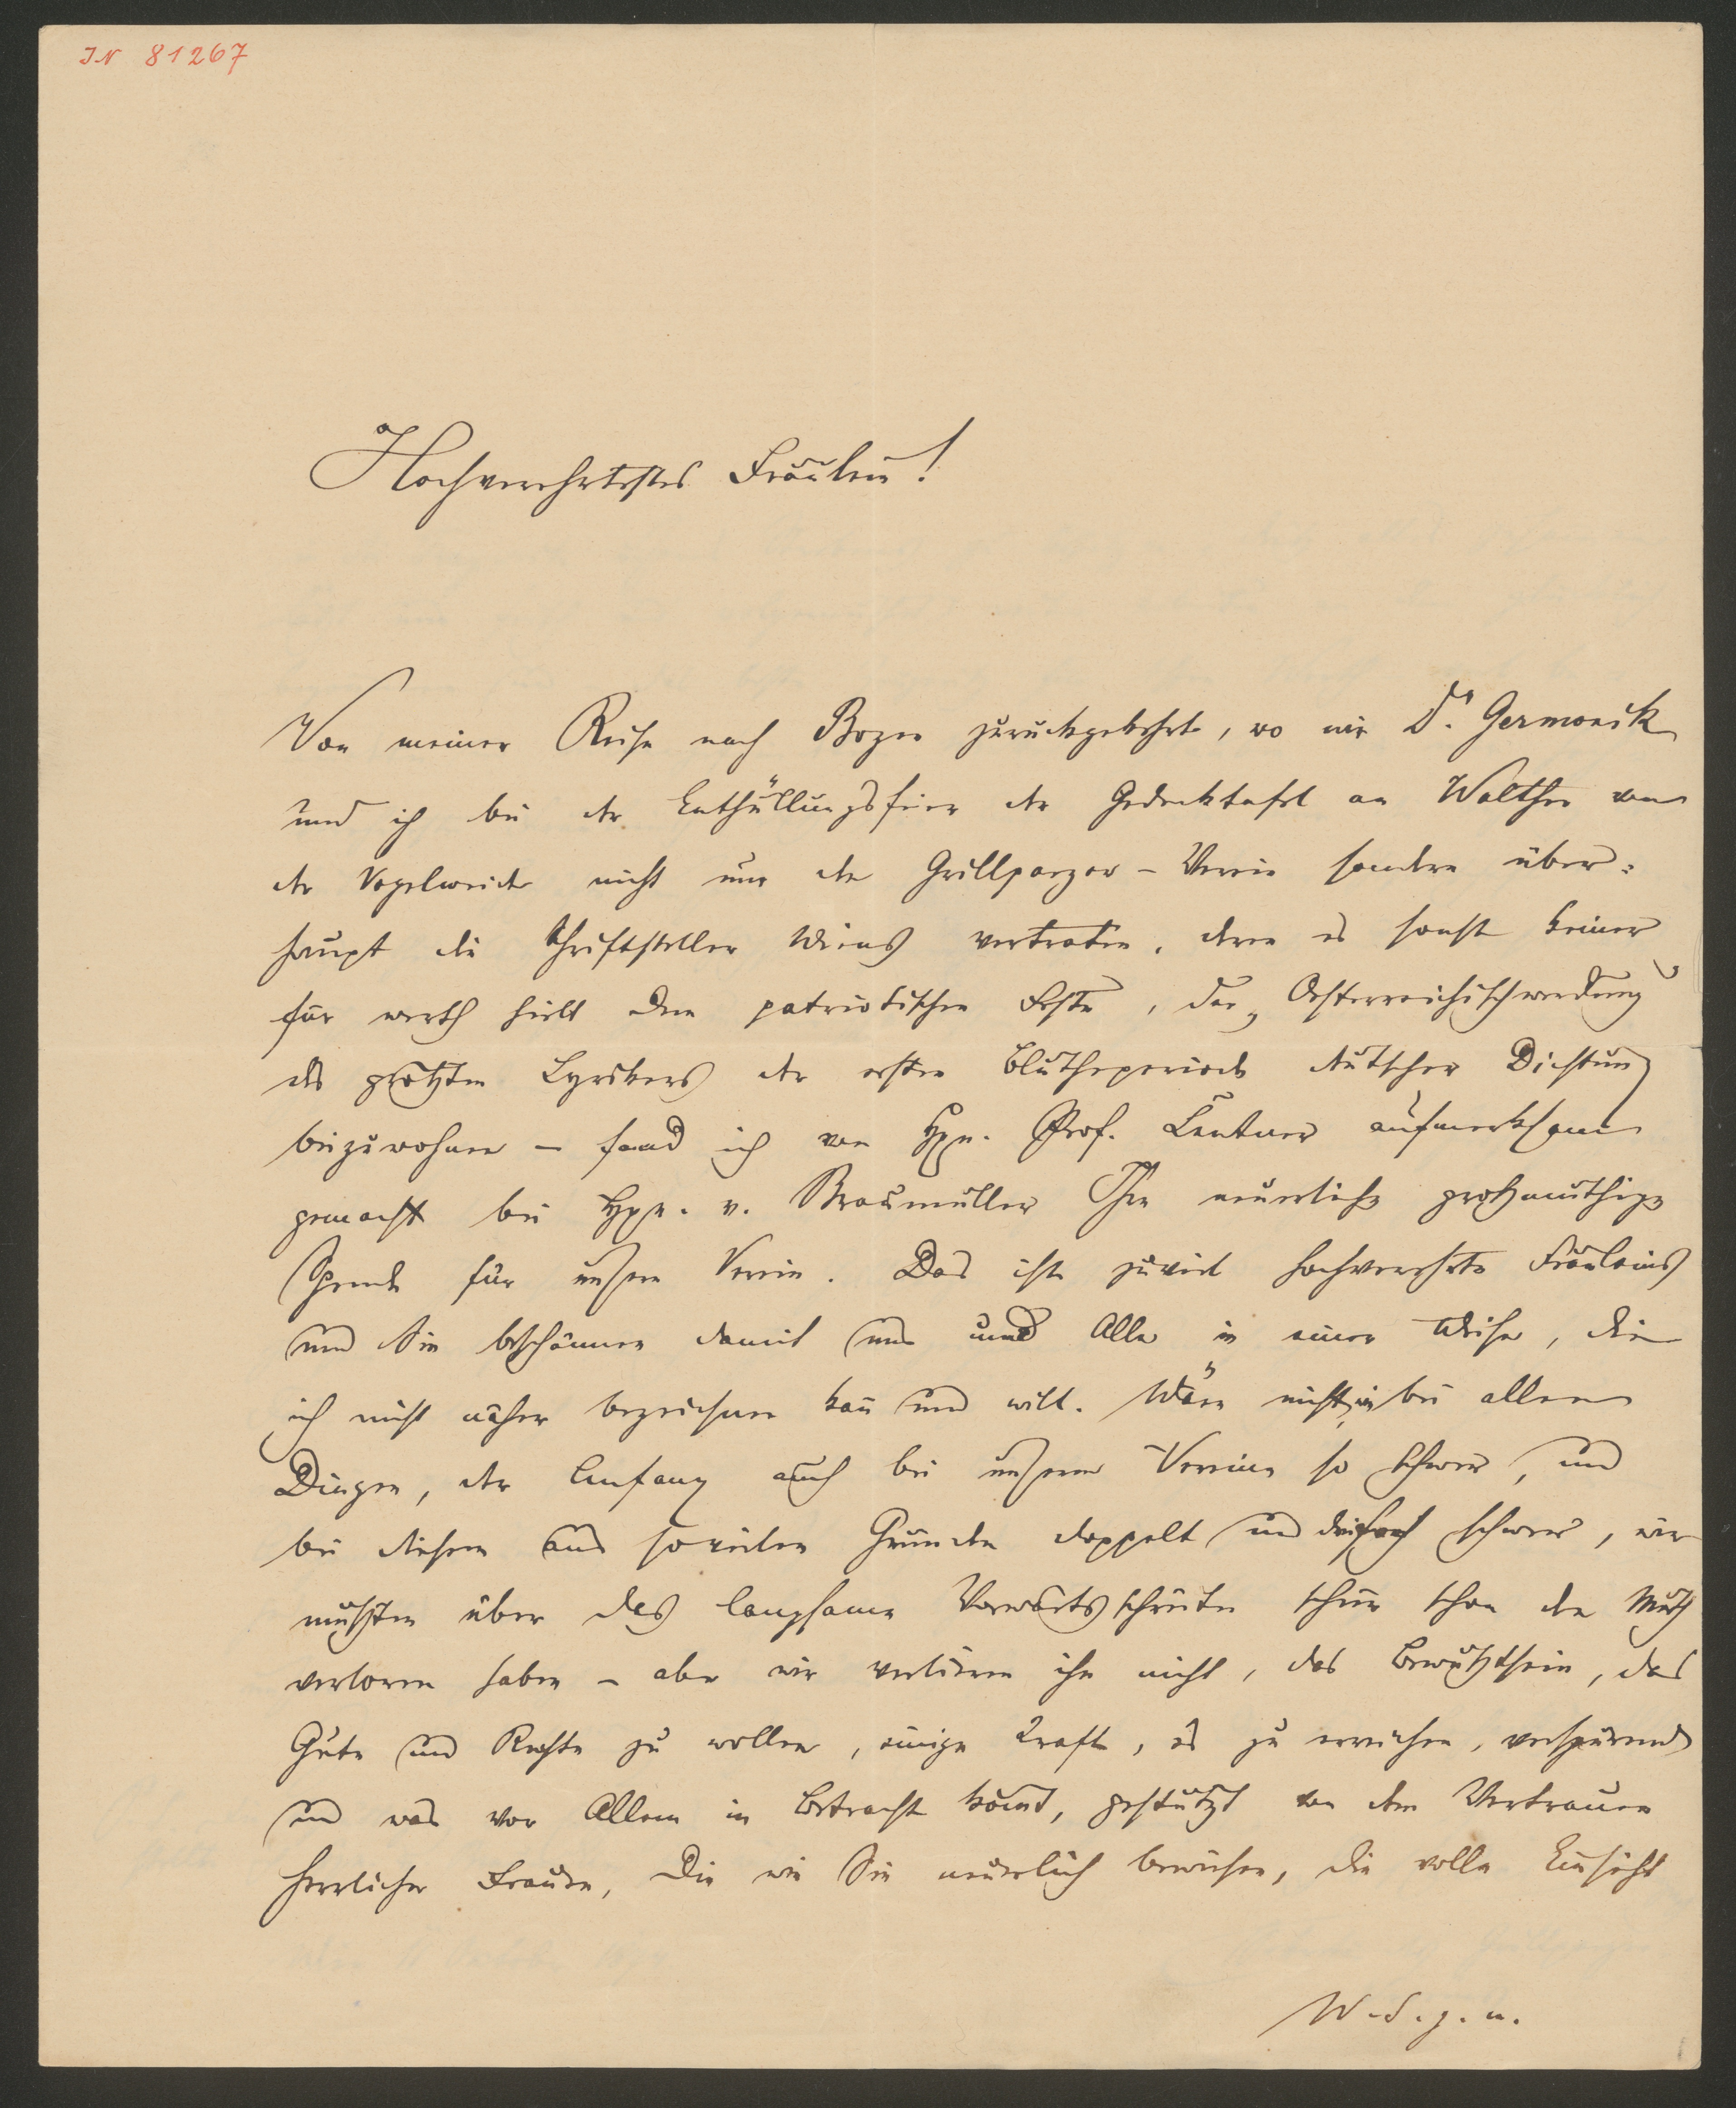 IN 81267
Hochverehrtestes Fräulein!
Von meiner Reise nach Bozen zurückgekehrt, wo wir Dr. Germonik
und ich bei der Enthüllungsfeier der Gedenktafel an Walther von
der Vogelweide nicht nur den Grillparzer-Verein sondern über=
haupt die Schriftsteller Wiens vertraten, denn es sonst keiner
für werth hielt dem patriotischen Feste, der „Oesterreichischwerdung“
des größten Lyrikers der ersten Blütheperiode deutscher Dichtung
beizuwohnen – fand ich von Hrn. Prof. Lentner aufmerksam
gemacht bei Hrn. v. Braumüller Ihre neuerliche großmüthige
Spende für unsern Verein. Das ist zuviel hochverehrtes Fräulein
und Sie beschämen damit uns Alle in einer Weise, die
ich nicht näher bezeichnen kan̄ und will. Wäre nicht, wie bei allen
Dingen, der Anfang auch bei unserem Vereine so schwer, und
bei diesem aus sovielen Gründen doppelt und dreifach schwer, wir
müßten über das langsame Vorwärtsschreiten schier schon den Muth
verloren haben – aber wir verlieren ihn nicht, das Bewußtsein, das
Gute und Rechte zu wollen, einige Kraft, es zu erreichen, verspürend
und was vor Allem in Betracht kom̄t, gestützt von dem Vertrauen
herrlicher Frauen, die wie Sie neuerlich bewiesen, die volle Einsicht
W. S. g. u.